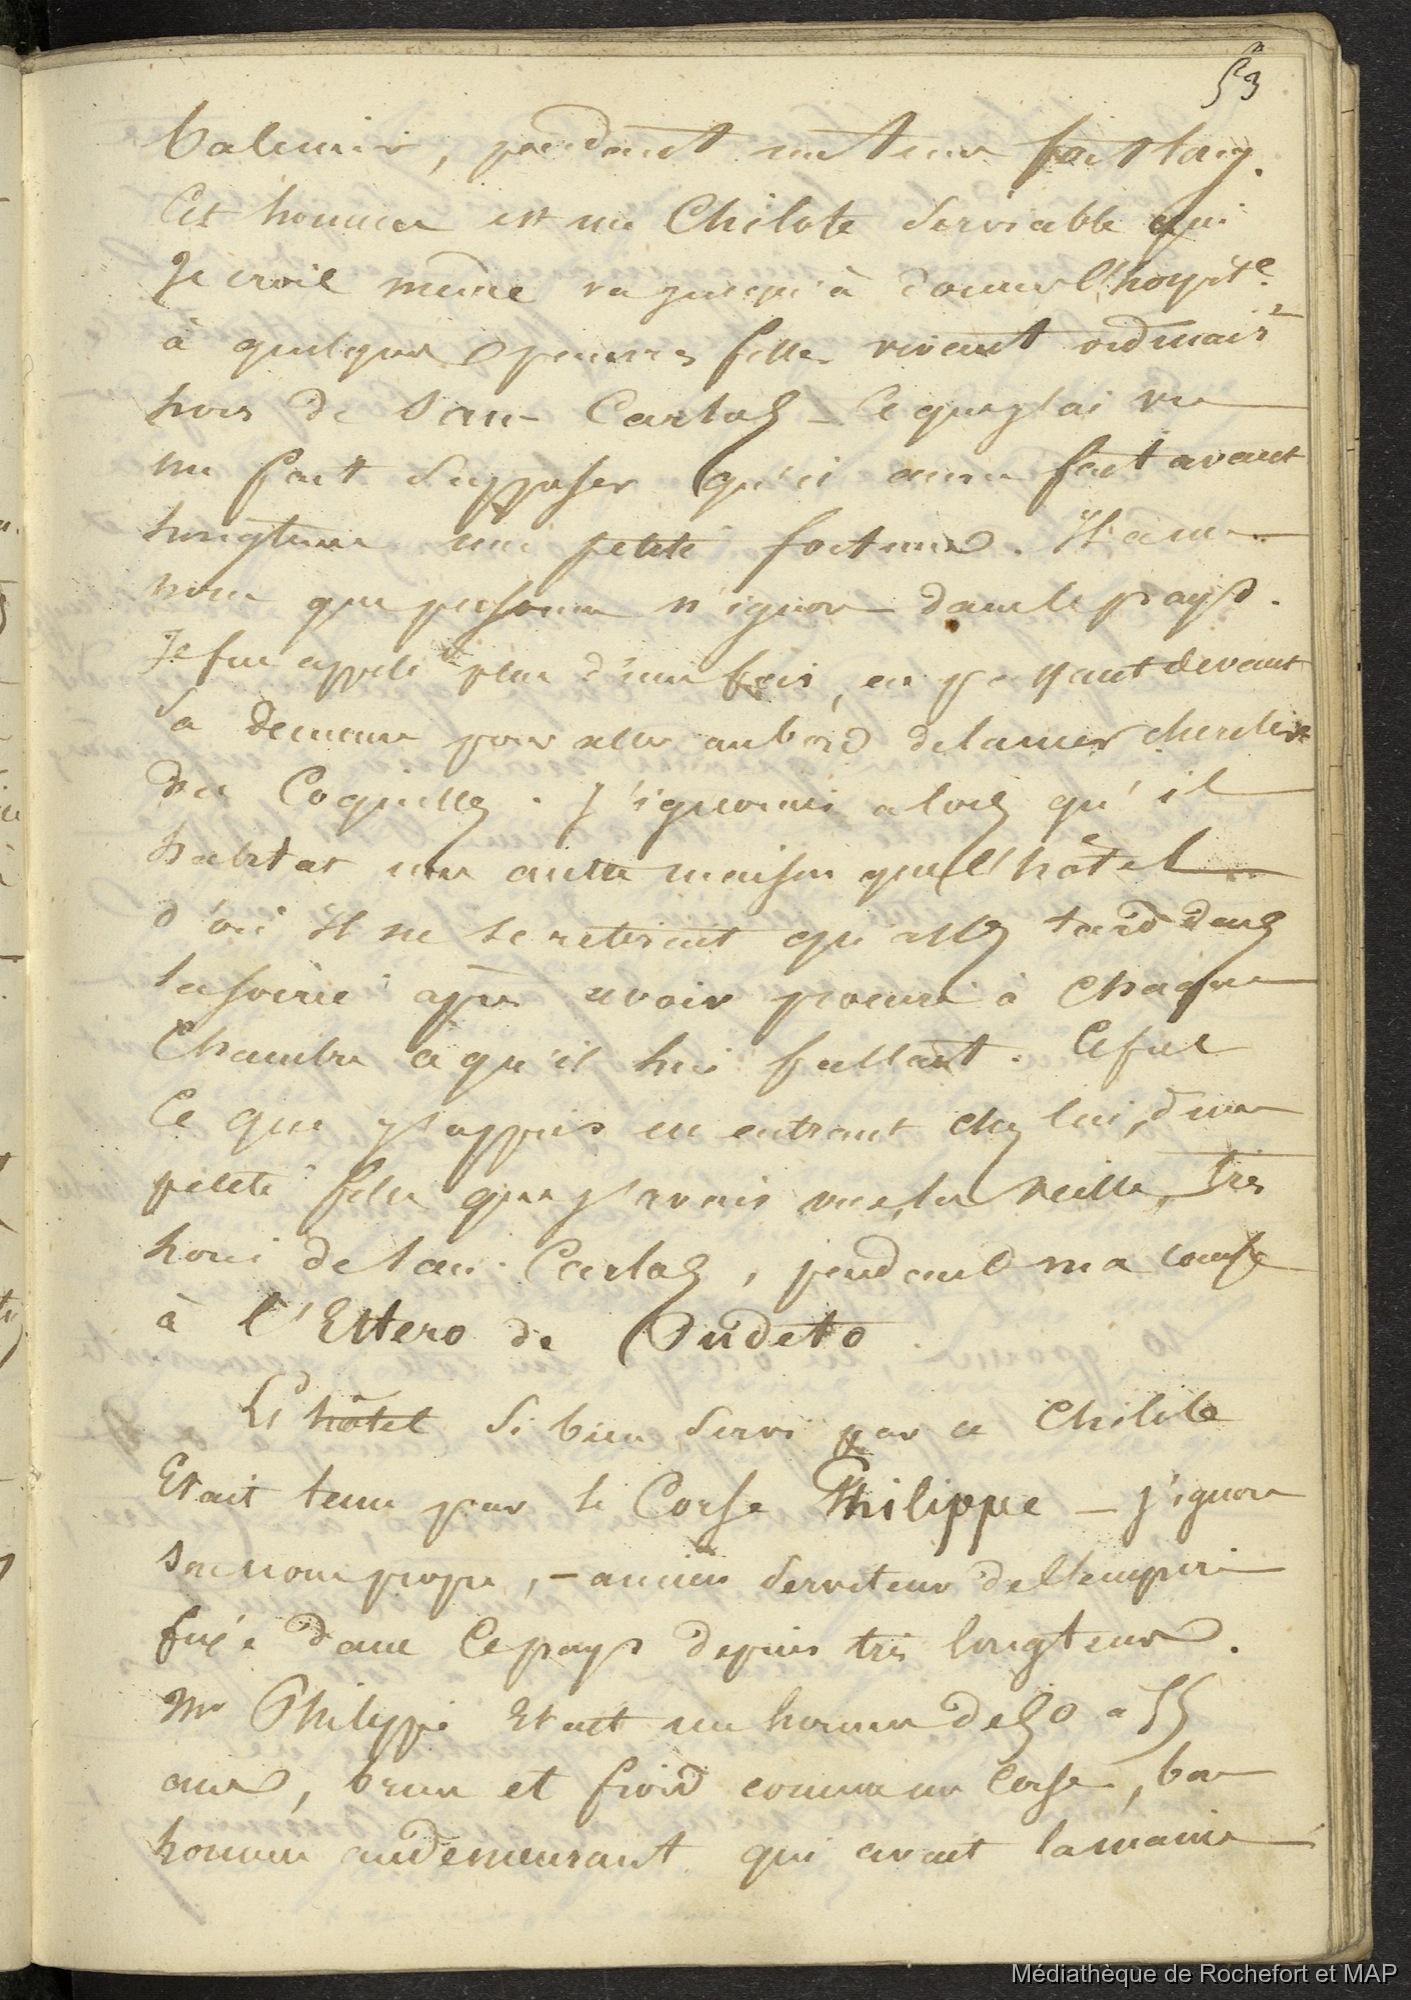 53
, pendant un tems fort long.
Cet homme est un Chilote Serviable qui
Je crois même va jusqu'à donner l'hospit.e
à quelques pauvres filles vivant ordinair.t
hors de San-Carlos – Ce que j'ai vu
me fait Supposer qu'il aura fait avant
longtems une petite fortune. Il a un
nom que personne n'ignore dans le pays.
Je fus appelé plus d'une fois, en passant devant
Sa Demeure pour aller au bord de la mer chercher
des Coquilles. J'ignorais alors qu'il
habitat une autre maison que l'hôtel
d'où il ne se retirait qu'assez tard dans
la soirée après avoir procuré à Chaque
Chambre ce qu'il lui fallait. Ce fut
Ce que j'appris en entrant chez lui, d'une
petite fille que j'avais vue, la veille, très
hors de San-Carlos, pendant ma course
à l'Estero de Pudeto.
L'hôtel Si bien Servi par ce Chilote
Etait tenu par le Corse Philippe – j'ignore
son nom propre, – ancien Serviteur de l'empire
fixé dans Ce pays depuis très longtems.
Mr Philippe Etait un homme de 50 a 55
ans, brun et froid comme un Corse, bon
homme au demeurant qui avait la manie
Médiathèque de Rochefort et MAP